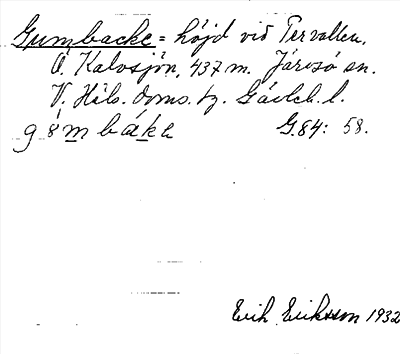 Gumbacke = höjd vid Tervallen,
Ö. Kalvsjön, 437 m. Järvsö sn.
V. Häls. doms. tg. Gävleb. l.
g ŏ m b ă k e G.84: 58.
Erik Eriksson 1932